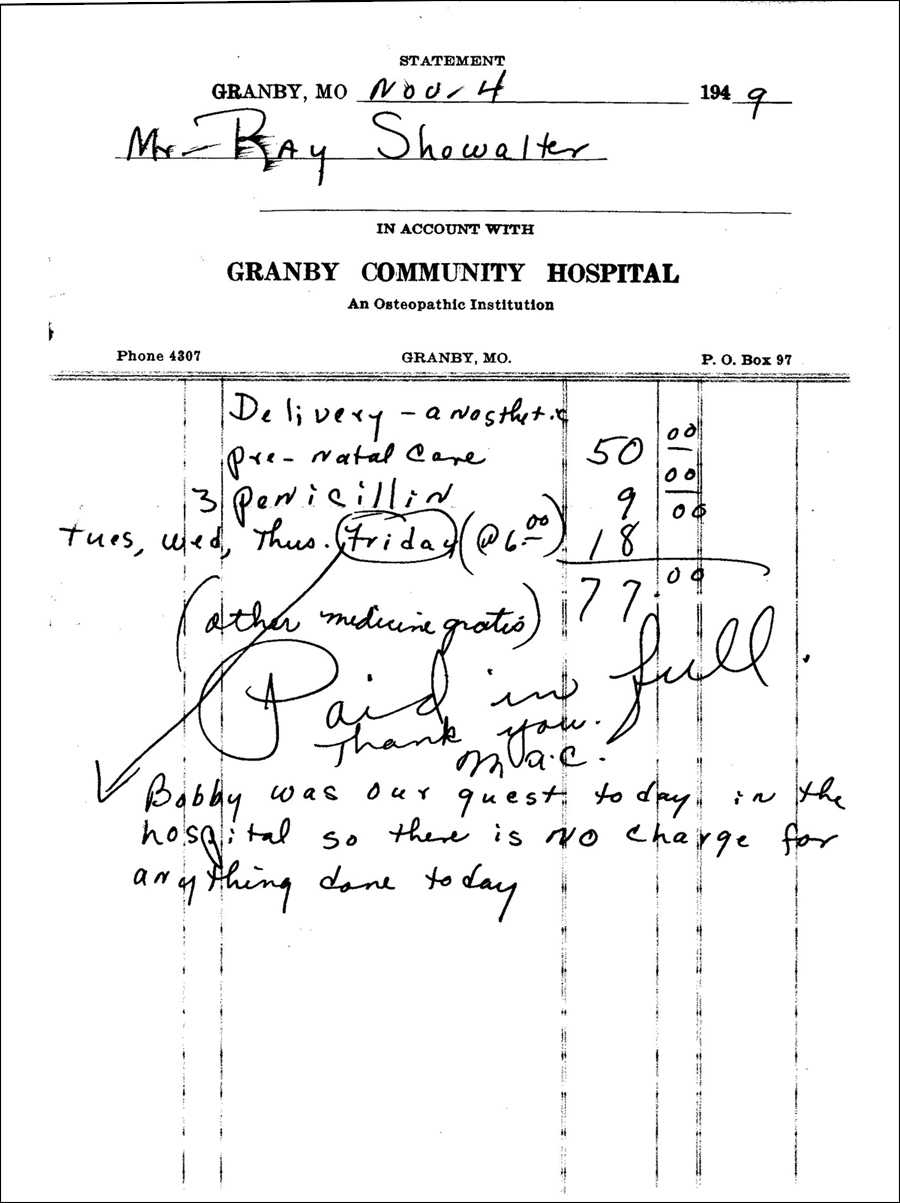 STATEMENT
GRANBY, MO Nov- 4 1949
Mr- Ray Showalter
IN ACCOUNT WITH
GRANBY COMMUNITY HOSPITAL
An Osteopathic Institution
Phone 4307 GRANBY, MO. P. O. Box 97
Delivery - anosthetic
pre- natal care 50 00
3 penicillin 9 00
Tues, Wed, Thus. Friday (@ 6.00) 18 00
77.00
(other medicine gratis)
Paid in full.
Thank you.
Mac.
Bobby was our quest today in the
hospital so there is no charge for
anything done today